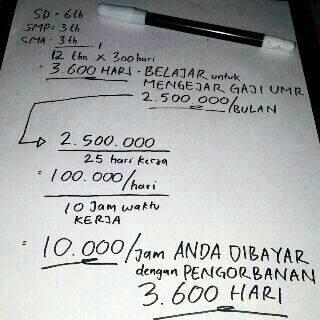 SD = 6th
SMP = 3th
SMA = 3th
12 thn x 300 hari
= 3.600 HARI - BELAJAR untuk
MENGEJAR GAJI UMR
2.500.000/BULAN
2.500.000
25 hari kerja
= 100.000/hari
10 Jam waktu
KERJA
= 10.000/Jam ANDA DIBAYAR
dengan PENGORBANAN
3.600 HARI